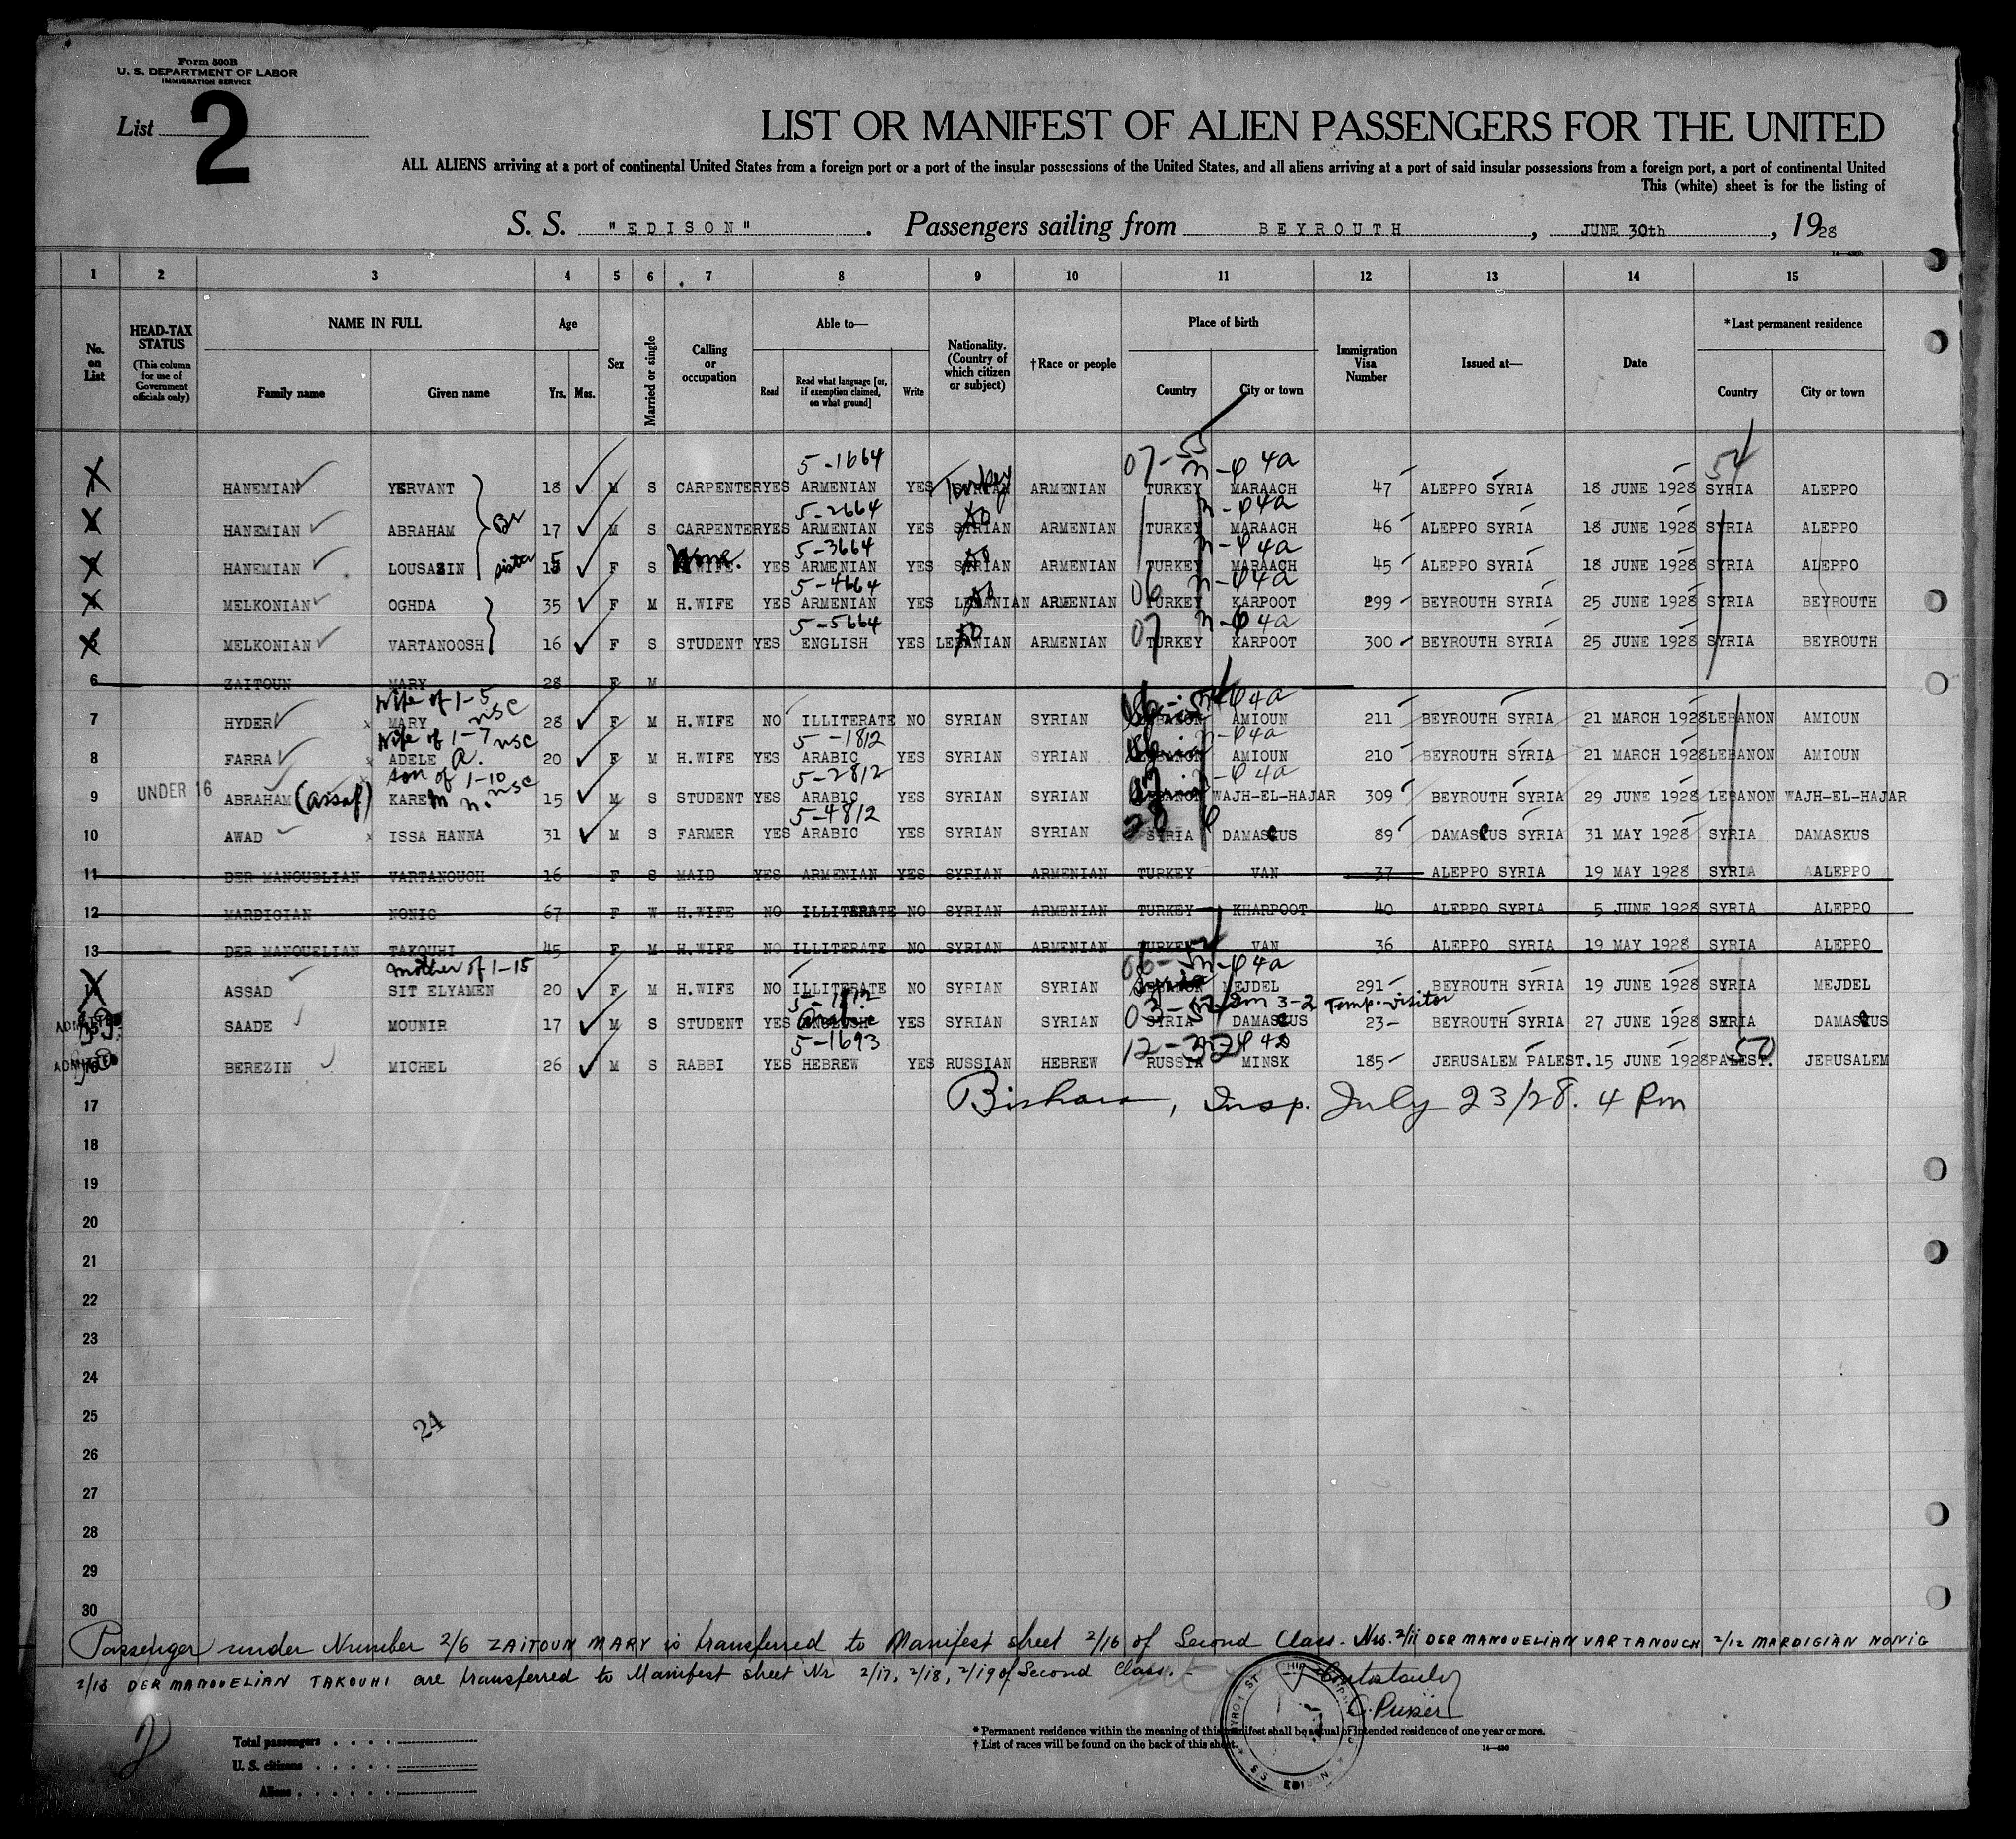 Form 500B
U. S. DEPARTMENT OF LABOR
IMMIGRATION SERVICE
List 2
LIST OR MANIFEST OF ALIEN PASSENGERS FOR THE UNITED
ALL ALIENS arriving at a port of continental United States from a foreign port or a port of the insular possessions of the United States, and all aliens arriving at a port of said insular possessions from a foreign port, a port of continental United
This (white) sheet is for the listing of
S. S. "EDISON". Passengers sailing from BEYROUTH, JUNE 30th, 1928
1 2 3 4 5 6 7 8 9 10 11 12 13 14 15
No. on List
HEAD-TAX STATUS (This column for use of Government officials only)
NAME IN FULL Family name Given name
Age Yrs. Mos.
Sex
Married or single
Calling or occupation
Able to— Read Read what language [or, if exemption claimed, on what ground] Write
Nationality. (Country of which citizen or subject)
†Race or people
Place of birth Country City or town
Immigration Visa Number
Issued at—
Date
*Last permanent residence Country City or town
5-1664 07-55 4a 54
HANEMIAN YERVANT 18 M S CARPENTER YES ARMENIAN YES Turkey ARMENIAN TURKEY MARAACH 47 ALEPPO SYRIA 18 JUNE 1928 SYRIA ALEPPO
5-2664 4a
HANEMIAN ABRAHAM Br 17 M S CARPENTER YES ARMENIAN YES SYRIAN do ARMENIAN TURKEY MARAACH 46 ALEPPO SYRIA 18 JUNE 1928 SYRIA ALEPPO
5-3664 4a
HANEMIAN LOUSAZIN sister 15 F S H.WIFE None. YES ARMENIAN YES SYRIAN do ARMENIAN TURKEY MARAACH 45 ALEPPO SYRIA 18 JUNE 1928 SYRIA ALEPPO
5-4664 06 4a
MELKONIAN OGHDA 35 F M H.WIFE YES ARMENIAN YES LEBANIAN do ARMENIAN TURKEY KARPOOT 299 BEYROUTH SYRIA 25 JUNE 1928 SYRIA BEYROUTH
5-5664 07 4a
MELKONIAN VARTANOOSH 16 F S STUDENT YES ENGLISH YES LEBANIAN do ARMENIAN TURKEY KARPOOT 300 BEYROUTH SYRIA 25 JUNE 1928 SYRIA BEYROUTH
6 ZAITOUN MARY 28 F M
Wife of 1-5 nsc 4a
7 HYDER x MARY 28 F M H.WIFE NO ILLITERATE NO SYRIAN SYRIAN LEBANON AMIOUN 211 BEYROUTH SYRIA 21 MARCH 1928 LEBANON AMIOUN
Wife of 1-7 nsc 5-1812 4a
8 FARRA x ADELE A. 20 F M H.WIFE YES ARABIC YES SYRIAN SYRIAN LEBANON AMIOUN 210 BEYROUTH SYRIA 21 MARCH 1928 LEBANON AMIOUN
son of 1-10 nsc 5-2812 4a
UNDER 16
9 ABRAHAM (Assaf) KAREM n. 15 M S STUDENT YES ARABIC YES SYRIAN SYRIAN LEBANON WAJH-EL-HAJAR 309 BEYROUTH SYRIA 29 JUNE 1928 LEBANON WAJH-EL-HAJAR
5-4812 28
10 AWAD x ISSA HANNA 31 M S FARMER YES ARABIC YES SYRIAN SYRIAN SYRIA DAMASCUS 89 DAMASCUS SYRIA 31 MAY 1928 SYRIA DAMASKUS
11 DER MANOUELIAN VARTANOUCH 16 F S MAID YES ARMENIAN YES SYRIAN ARMENIAN TURKEY VAN 37 ALEPPO SYRIA 19 MAY 1928 SYRIA AALEPPO
12 MARDIGIAN NONIG 67 F W H.WIFE NO ILLITERATE NO SYRIAN ARMENIAN TURKEY KHARPOOT 40 ALEPPO SYRIA 5 JUNE 1928 SYRIA ALEPPO
13 DER MANOUELIAN TAKOUHI 45 F M H.WIFE NO ILLITERATE NO SYRIAN ARMENIAN TURKEY VAN 36 ALEPPO SYRIA 19 MAY 1928 SYRIA ALEPPO
mother of 1-15 06-54 4a
ASSAD SIT ELYAMEN 20 F M H.WIFE NO ILLITERATE NO SYRIAN SYRIAN LEBANON Syria MEJDEL 291 BEYROUTH SYRIA 19 JUNE 1928 SYRIA MEJDEL
ADMITTED 5-1812 03-54 3-2 Temp. visitor
15 SAADE MOUNIR 17 M S STUDENT YES ENGLISH Arabic YES SYRIAN SYRIAN SYRIA DAMASCUS 23- BEYROUTH SYRIA 27 JUNE 1928 SYRIA DAMASCUS
ADMITTED 5-1693 12-32 50
16 BEREZIN MICHEL 26 M S RABBI YES HEBREW YES RUSSIAN HEBREW RUSSIA MINSK 185- JERUSALEM PALEST. 15 JUNE 1928 PALEST. JERUSALEM
17 Bishara, Insp. July 23/28. 4 Pm
18
19
20
21
22
23
24
24
25
26
27
28
29
30
Passenger under Number 2/6 ZAITOUN MARY is transferred to Manifest street 2/16 of Second Class. Nrs. 2/11 DER MANOUELIAN VARTANOUCH 2/12 MARDIGIAN NONIG
2/13 DER MANOUELIAN TAKOUHI are transferred to Manifest street Nr 2/17, 2/18, 2/19 of Second Class.
2
Total passengers
U. S. citizens
Aliens
* Permanent residence within the meaning of this manifest shall be actual of intended residence of one year or more.
† List of races will be found on the back of this sheet.
EDISON